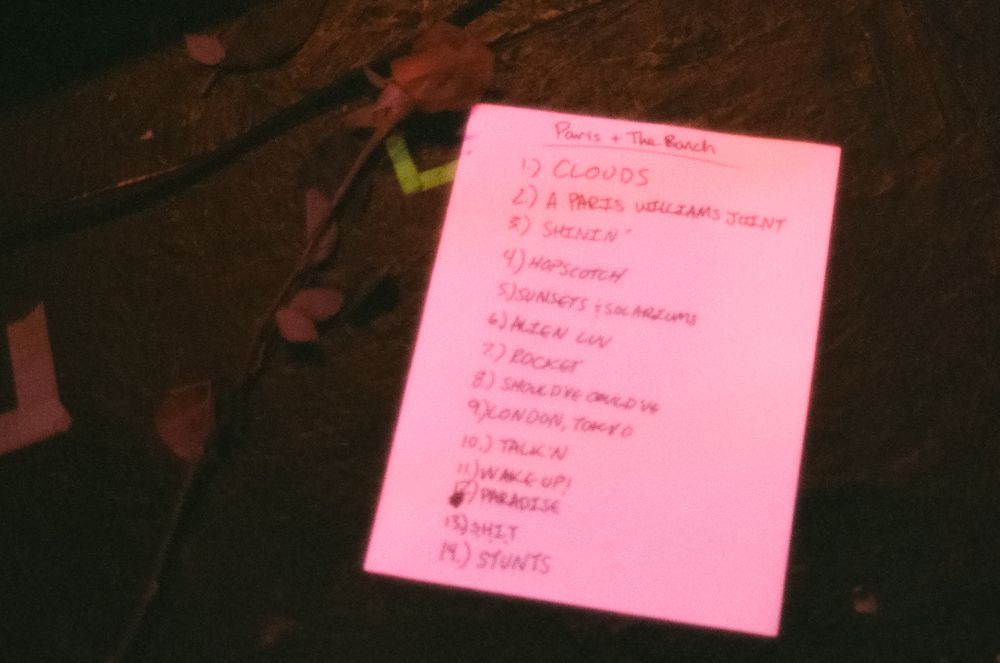 Paris + The Banch
1.) CLOUDS
2.) A PARIS WILLIAMS JOINT
3) SHININ'
4.) HOPSCOTCH
5) SUNSETS + SOLARIUMS
6.) ALIEN LUV
7.) ROCKET
8.) SHOULD'VE COULD'VE
9) LONDON, TOKYO
10.) TALK'N
11.) WAKE UP!
12) PARADISE
13) SHIT
14.) STUNTS